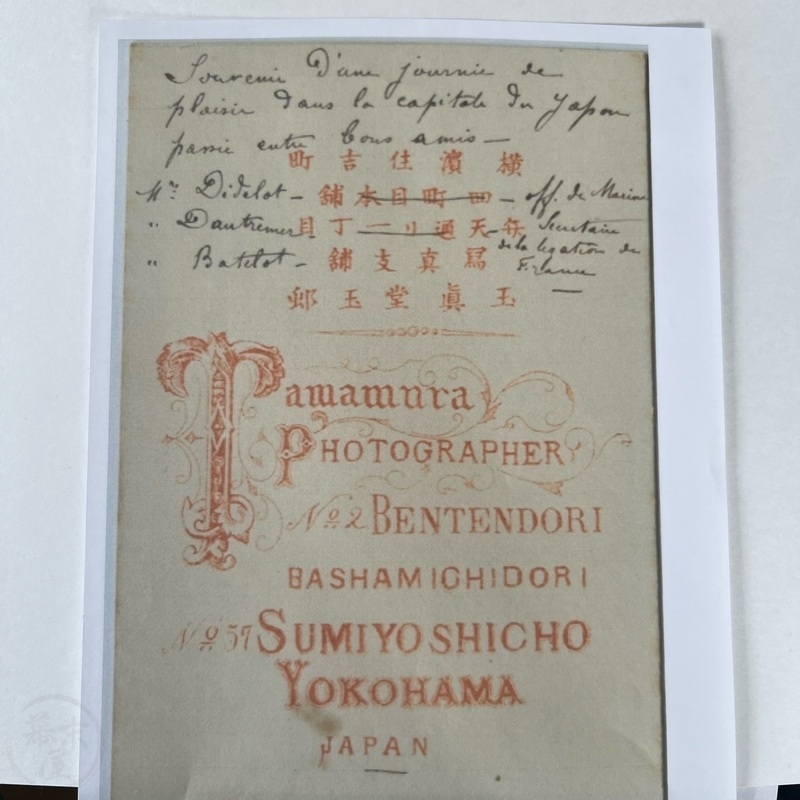 Souvenir d'une journée de
plaisir dans la capitale du Japon
passée entre bons amis —
町吉住濱横
Mrs Didelot — 舗本目町四 — off. de Marine
" Dautremer — 目丁一リ通天弁 — Secretaire
de la légation de
" Batelot — 舗支真寫 France
邨玉堂眞玉
Tamamura
PHOTOGRAPHER
No 2 BENTENDORI
BASHAMICHIDORI
No 57 SUMIYOSHICHO
YOKOHAMA
JAPAN